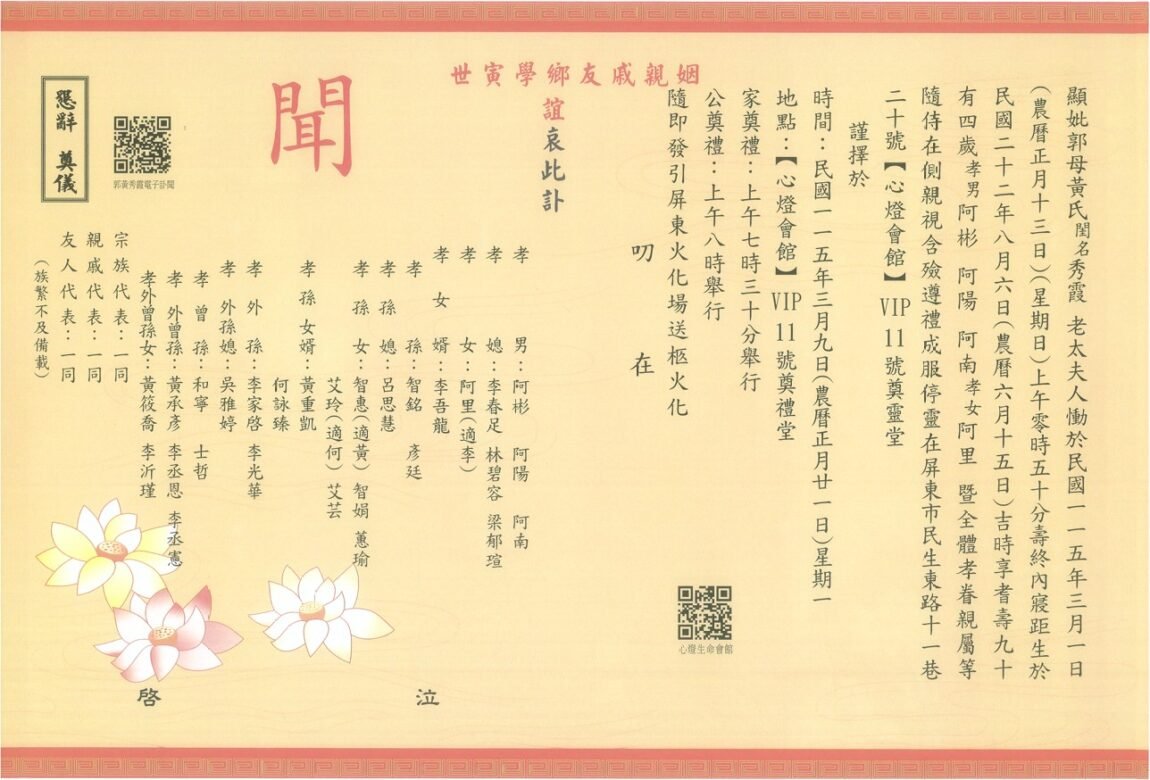 顯妣郭母黃氏閨名秀霞 老太夫人慟於民國一一五年三月一日
(農曆正月十三日)(星期日)上午零時五十分壽終內寢距生於
民國二十二年八月六日(農曆六月十五日)吉時享耆壽九十
有四歲孝男阿彬 阿陽 阿南孝女阿里 暨全體孝眷親屬等
隨侍在側親視含殮遵禮成服停靈在屏東市民生東路十一巷
二十號【心燈會館】VIP 11號奠靈堂
謹擇於
時間：民國一一五年三月九日(農曆正月廿一日)星期一
地點：【心燈會館】VIP 11號奠禮堂
家奠禮：上午七時三十分舉行
公奠禮：上午八時舉行
隨即發引屏東火化場送柩火化
叨 在
姻親戚友鄉學寅世
誼哀此訃
聞
孝 男：阿彬 阿陽 阿南
孝 媳：李春足 林碧容 梁郁瑄
孝 女：阿里(適李)
孝 女 婿：李吾龍
孝 孫：智銘 彥廷
孝 孫 媳：呂思慧
孝 孫 女：智惠(適黃) 智娟 蕙瑜
艾玲(適何) 艾芸
孝 孫 女婿：黃重凱
何詠臻
孝 外 孫：李家啓 李光華
孝 外孫媳：吳雅婷
孝 曾 孫：和寧 士哲
孝 外曾孫：黃承彥 李丞恩 李丞憲
孝外曾孫女：黃筱喬 李沂瑾
宗族代表：一同
親戚代表：一同
友人代表：一同
(族繁不及備載)
泣
啓
懇辭 奠儀
郭黃秀霞電子訃聞
心燈生命會館